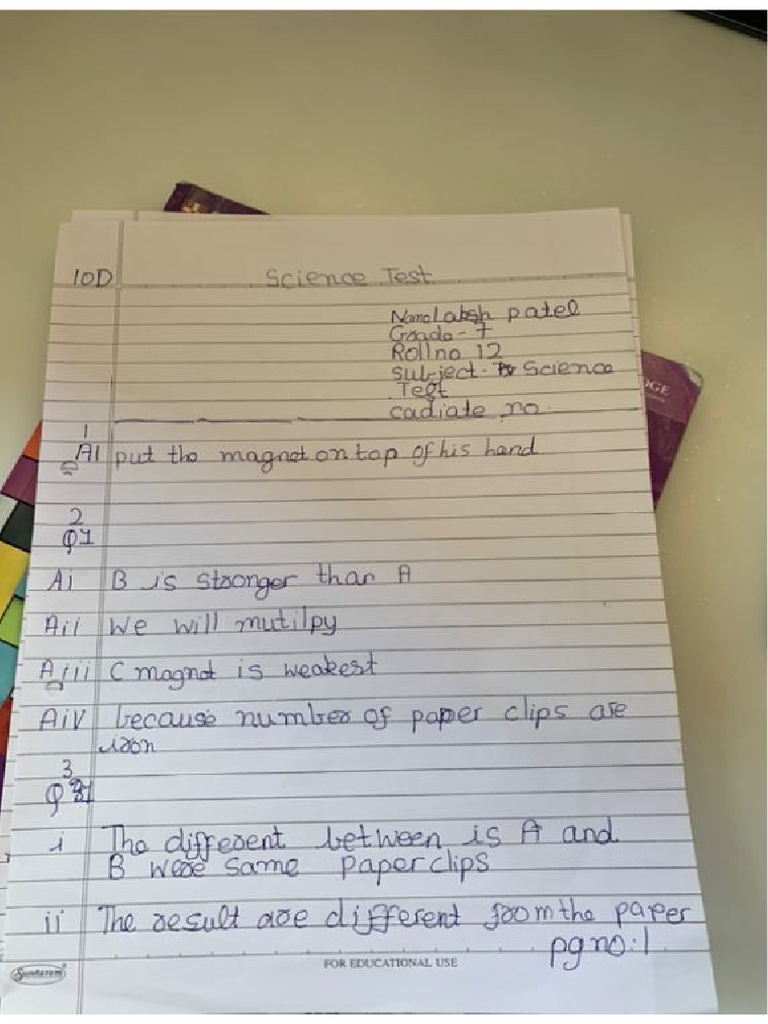 10D Science Test
Name Labsh patel
Grade - 7
Roll no 12
subject - Science
Test
cadiate no.
1
A1 put the magnet on top of his hand
2
Q1
Ai B is stronger than A
Aii We will mutilpy
Aiii C magnet is weakest
Aiv because number of paper clips are
iron
3
Q
i The different between is A and
B were same paper clips
ii The result are different from the paper
pg no:1
Sundaram
FOR EDUCATIONAL USE
DGE